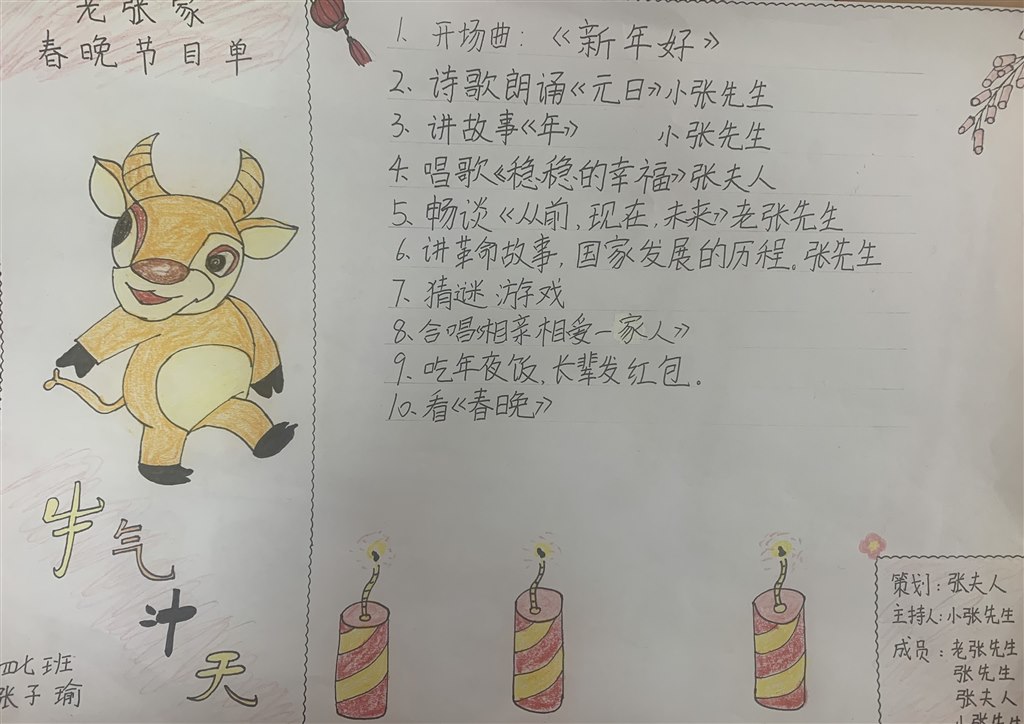 老张家
春晚节目单
1. 开场曲：《新年好》
2、诗歌朗诵《元日》小张先生
3、讲故事《年》 小张先生
4、唱歌《稳稳的幸福》张夫人
5、畅谈《从前，现在，未来》老张先生
6、讲革命故事，国家发展的历程。张先生
7、猜谜 游戏
8、合唱《相亲相爱一家人》
9、吃年夜饭，长辈发红包。
10、看《春晚》
牛
气
汁
天
四七班
张子瑜
策划：张夫人
主持人：小张先生
成员：老张先生
张先生
张夫人
小张先生